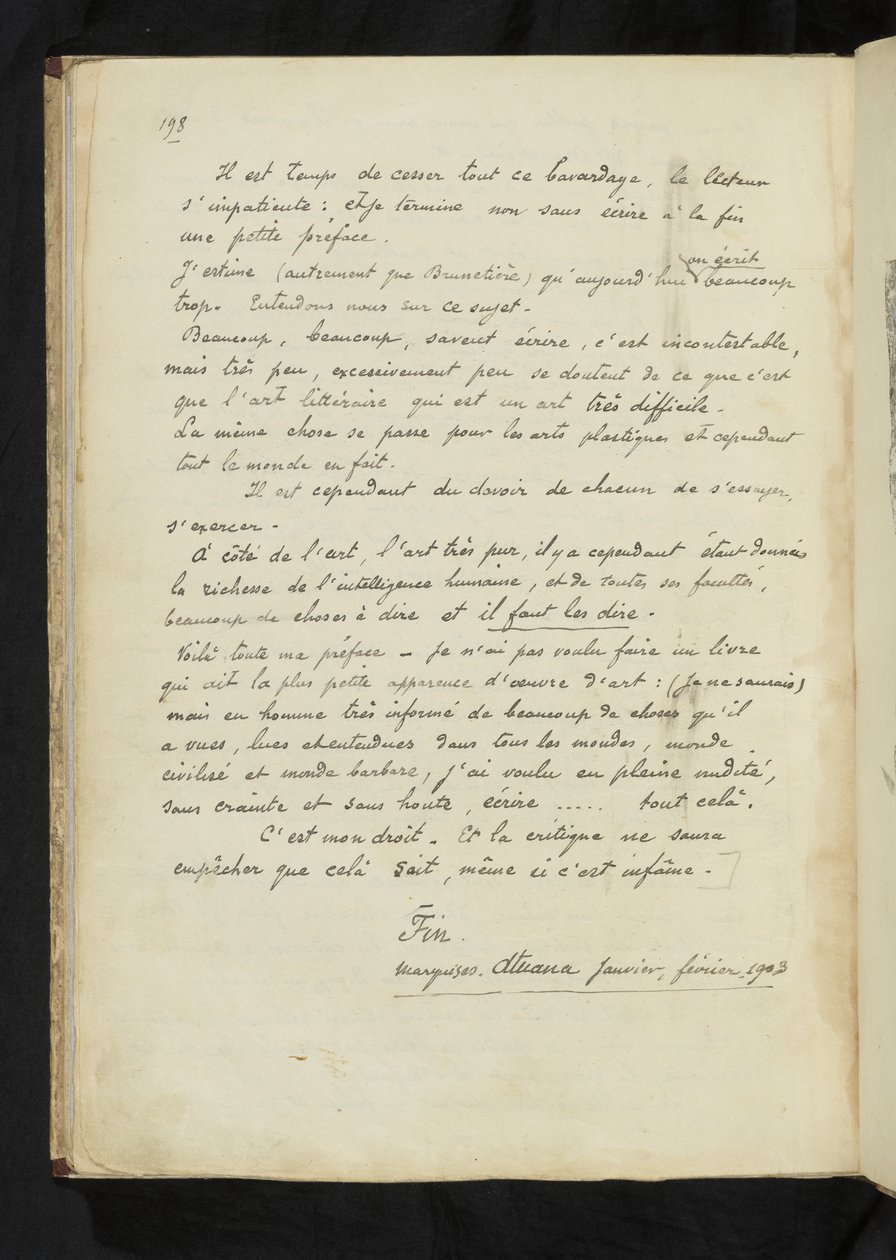 198
Il est temps de cesser tout ce bavardage, le lecteur
s'impatiente : et je termine non sans écrire à la fin
une petite préface.
on écrit
J'estime (autrement que Brunetière) qu'aujourd'hui beaucoup
trop. Entendons nous sur ce sujet.
Beaucoup, beaucoup, savent écrire, c'est incontestable,
mais très peu, excessivement peu se doutent de ce que c'est
que l'art littéraire qui est un art très difficile.
La même chose se passe pour les arts plastiques et cependant
tout le monde en fait.
Il est cependant du devoir de chacun de s'essayer,
s'exercer.
A côté de l'art, l'art très pur, il y a cependant étant données
la richesse de l'intelligence humaine, et de toutes ses facultés,
beaucoup de choses à dire et il faut les dire.
Voilà toute ma préface — je n'ai pas voulu faire un livre
qui ait la plus petite apparence d'œuvre d'art : (je ne saurais)
mais en homme très informé de beaucoup de choses qu'il
a vues, lues et entendues dans tous les mondes, monde
civilisé et monde barbare, j'ai voulu en pleine nudité,
sans crainte et sans honte, écrire ..... tout celà.
C'est mon droit. Et la critique ne saura
empêcher que celà soit, même si c'est infâme.
Fin.
Marquises. Atuana Janvier, février 1903